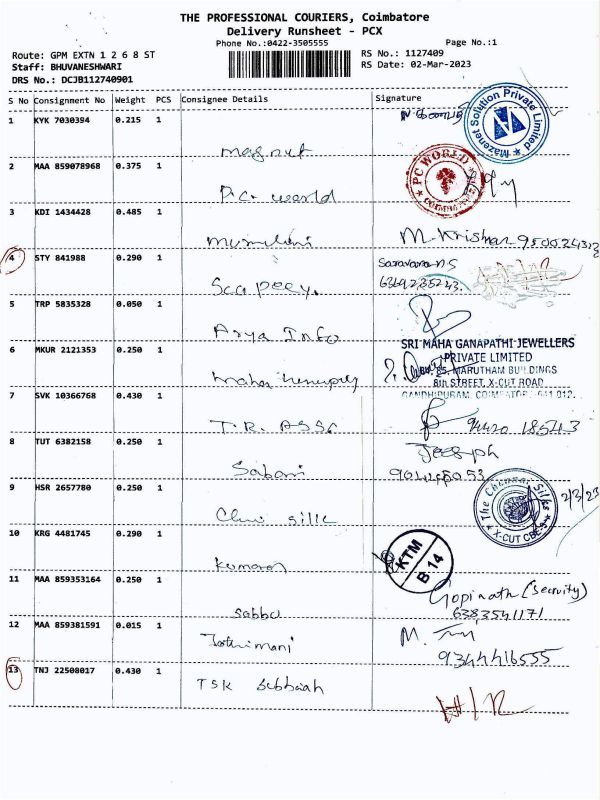 THE PROFESSIONAL COURIERS, Coimbatore
Delivery Runsheet - PCX
Phone No.:0422-3505555
Page No.:1
Route: GPM EXTN 1 2 6 8 ST
RS No.: 1127409
Staff: BHUVANESHWARI
RS Date: 02-Mar-2023
DRS No.: DCJB112740901
S No Consignment No Weight PCS Consignee Details Signature
1 KYK 7030394 0.215 1
Mazenet Solution Private Limited
magnut
2 MAA 859078968 0.375 1
PC WORLD
P.C. world
3 KDI 1434428 0.485 1
M. Krishnan
4 STY 841988 0.290 1
Saravana
5 TRP 5835328 0.050 1
Arya Info
SRI MAHA GANAPATHI JEWELLERS
6 MKUR 2121353 0.250 1
PRIVATE LIMITED
MARUTHAM BUILDINGS
8th STREET, X-CUT ROAD
7 SVK 10366768 0.430 1
GANDHIPURAM, COIMBATORE
T.R. Assc
8 TUT 6382158 0.250 1
Joseph
Sabari
9 HSR 2657780 0.250 1
The Chennai Silks
X-CUT CBE-9
2/3/23
silk
10 KRG 4481745 0.290 1
KTM
B 14
kumaran
11 MAA 859353164 0.250 1
Gopinath (Security)
6383541171
12 MAA 859381591 0.015 1
Jothimani
9344416555
13 TNJ 22508017 0.430 1
TSK Subbaiah